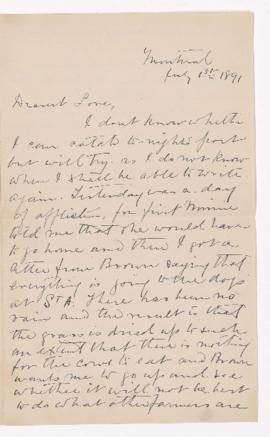 Montreal
July 1st 1891
Dearest Love,
I dont know whether
I can catch to night's post
but will try. as I do not know
when I shall be able to write
again. Yesterday was a day
of affliction, for first Minnie
told me that she would have
to go home and then I got a
letter from Brown saying that
everything is going to the dogs
at St A. There has been no
rain and the result is that
the grass is dried up to such
an extent that there is nothing
for the cows to eat and Brown
wants me to go up and see
whether it will not be best
to do what other farmers are